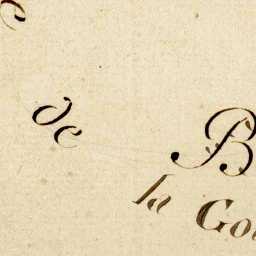 de
B
la Go